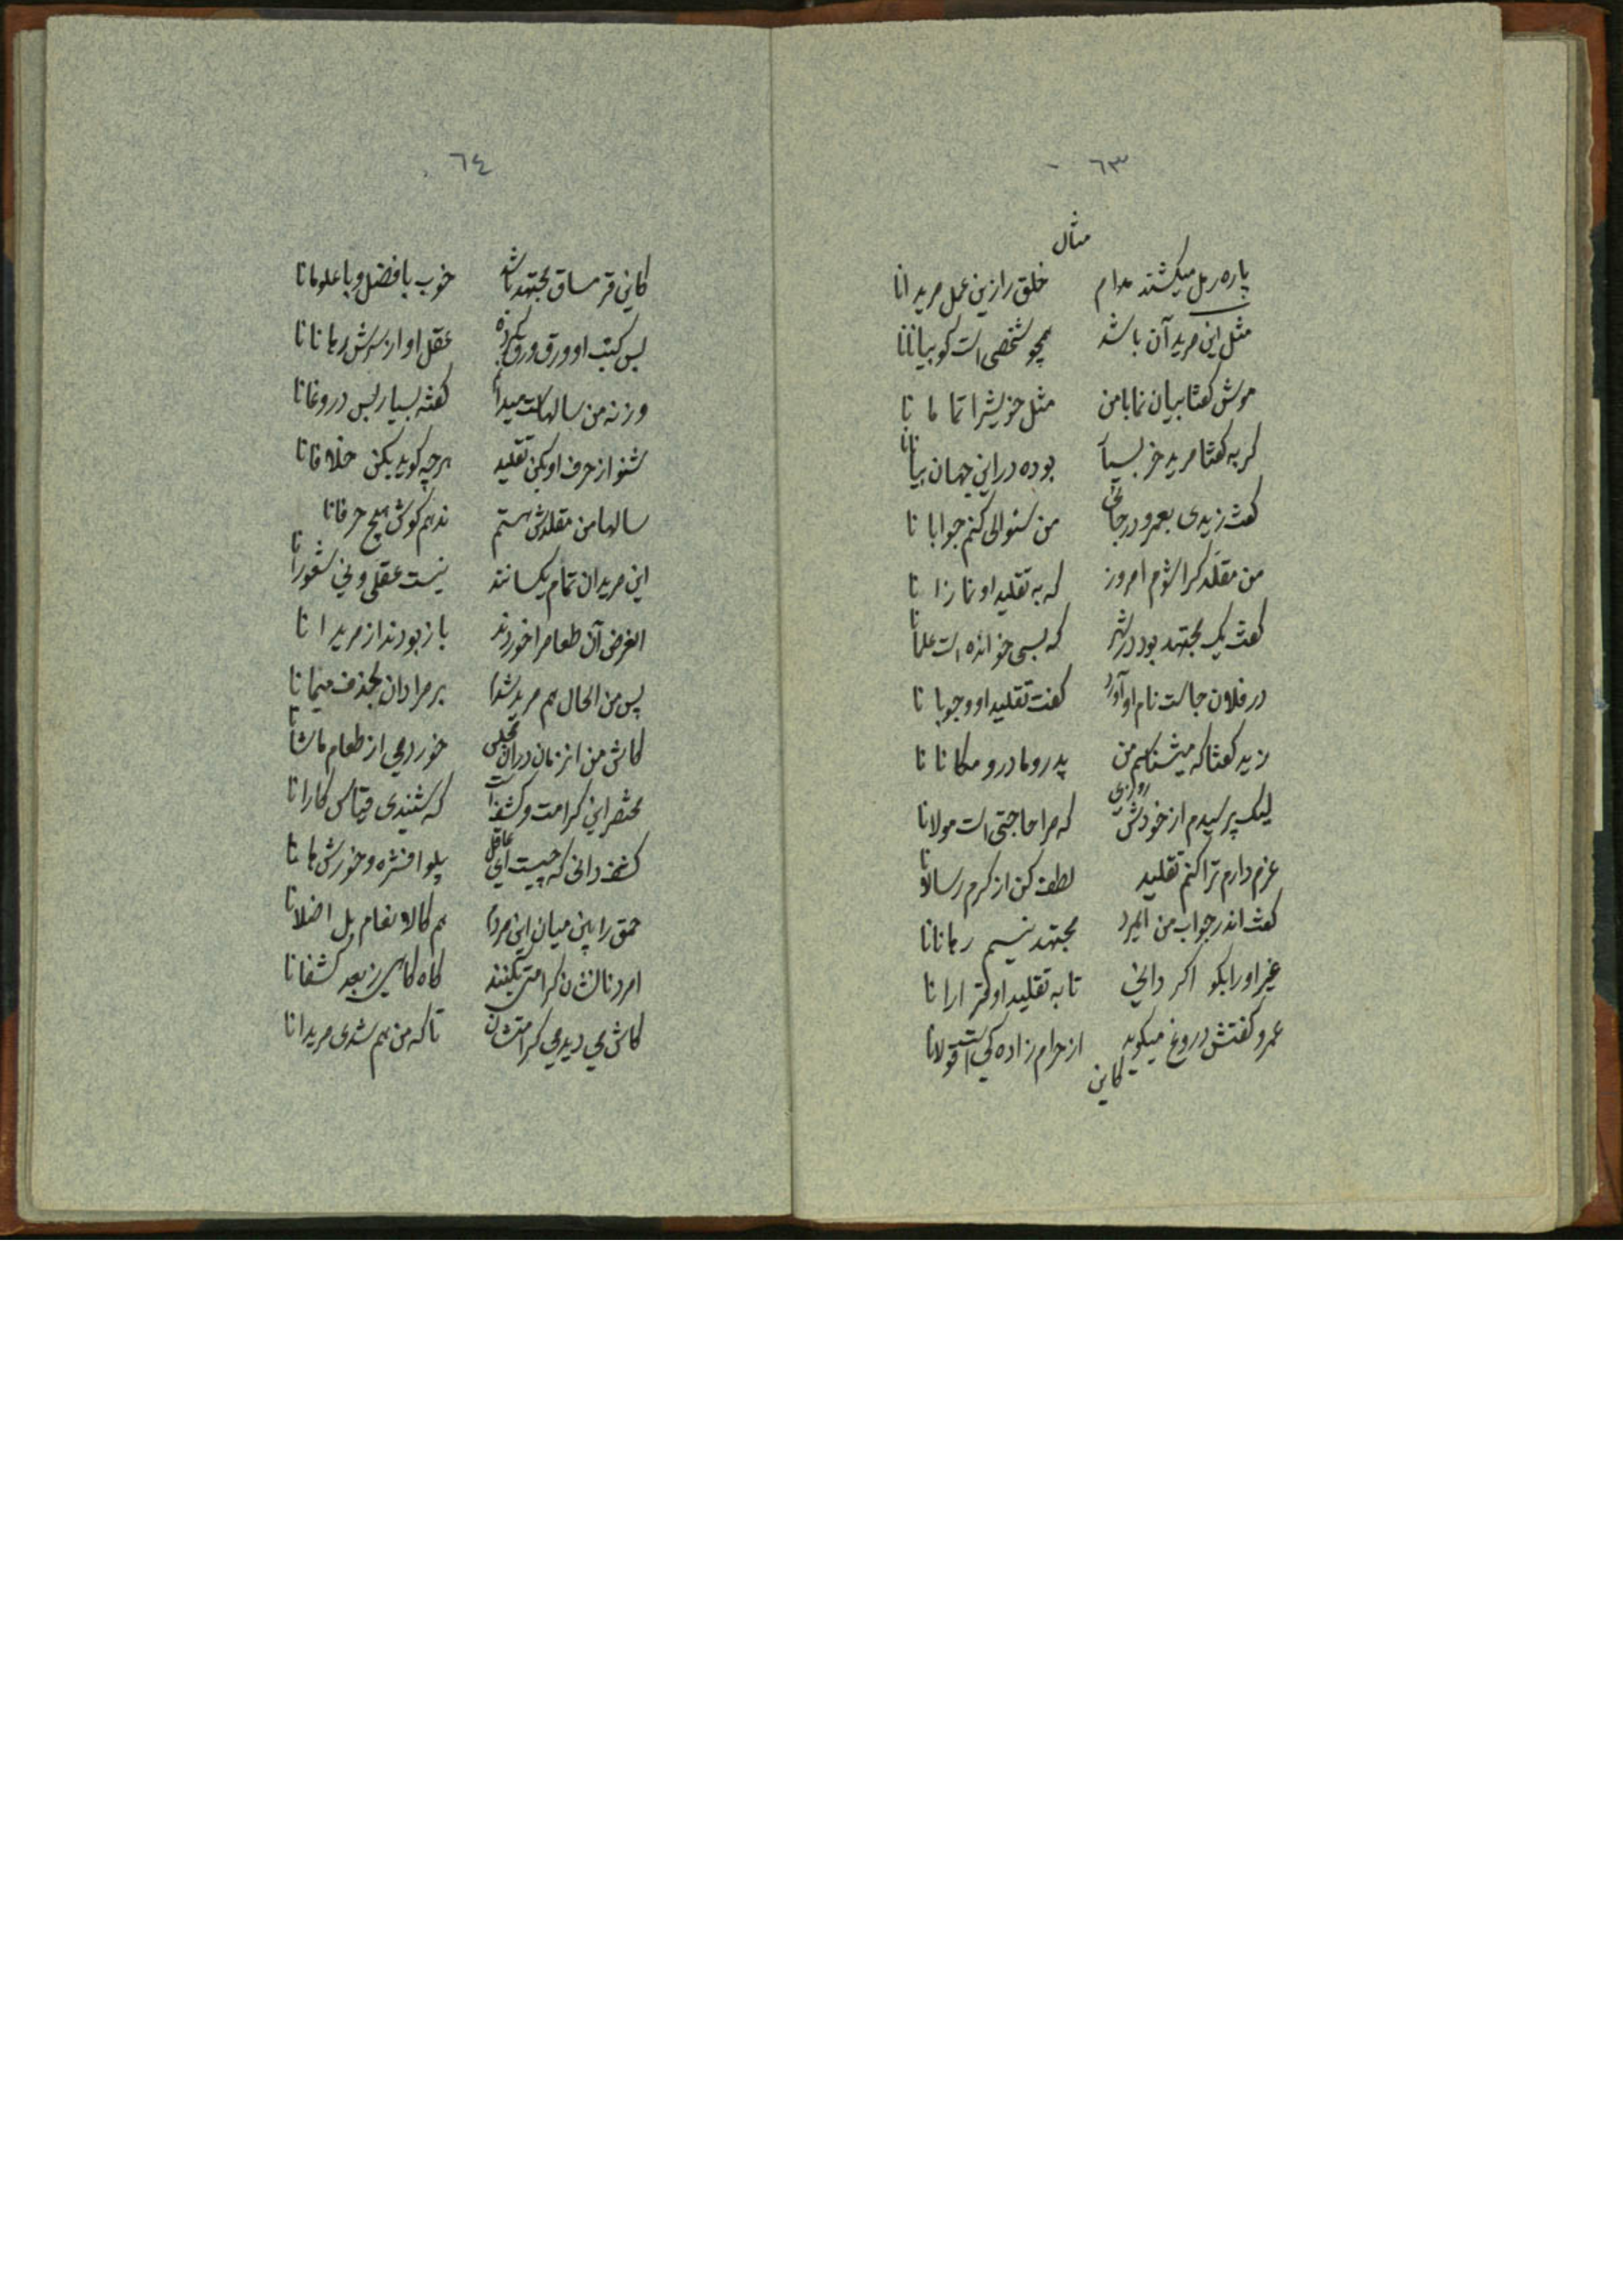 ٦٣
مثال
پاره رمل میکشند مدام خلق را زین عمل مریدانا
مثل این مرید آن باشد همچو شخصی است کو بیانانا
موش گفتا بیان نما با من مثل خویشرا تماما نا
گربه گفتا مرید خر بسیا بوده در این جهان بیانانا
گفت زیدی بعمرو در جائی من سئوالی کنم جوابا نا
من مقلد کرا شوم امروز که به تقلید او نمازا نا
گفت یک مجتهد بود در شهر که بسی خوانده است علمانا
در فلان جاست نام او آورد گفت تقلید او وجوبا نا
زید گفتا که میشناسم من پدر و مادر و مکانا نا
لیک پرسیدم از خودش روزی که مرا حاجتی است مولانا
عزم دارم ترا کنم تقلید لطف کن از کرم رسالانا
گفت اندر جواب من ایمرد مجتهد نیسم رهانانا
غیر او را بگو اگر دانی تا به تقلید او قرارا نا
عمرو گفتش دروغ میگوید از حرام زاده کی است قولانا
کاین
٦٤
کاین قرمساق مجتهد باشد خوب با فضل و با علومانا
بس کتب او ورق ورق کرده عقل او از سرش رهانانا
ورنه من سالهاست میدانم گفته بسیار بس دروغانا
شنو از حرف او بکن تقلید هرچه گوید بکن خلافانا
سالها من مقلدش هستم ندهم گوش هیچ حرفانا
این مریدان تمام یکسانند نیست عقلی و نی شعورانا
الغرض آن طعامرا خوردند باز بودند از مریدا نا
پس من الحال هم مرید شدم بر مرادان بحذف میمانا
کاش من انزمان در ان مجلس خوردمی از طعام ماشانا
مختصر این کرامت و کشف است که شنیدی قیاس کارانا
کشف دانی که چیست ای عاقل پلو افشره و خورش هانا
حمق را بین میان این مردم هم کالانعام بل اضلانا
امردنا لنشان کرامتی بکنند گاه گاهی ز بعد کشفانا
کاش می دیدمی کرامتشان تا که من هم شدی مریدانا